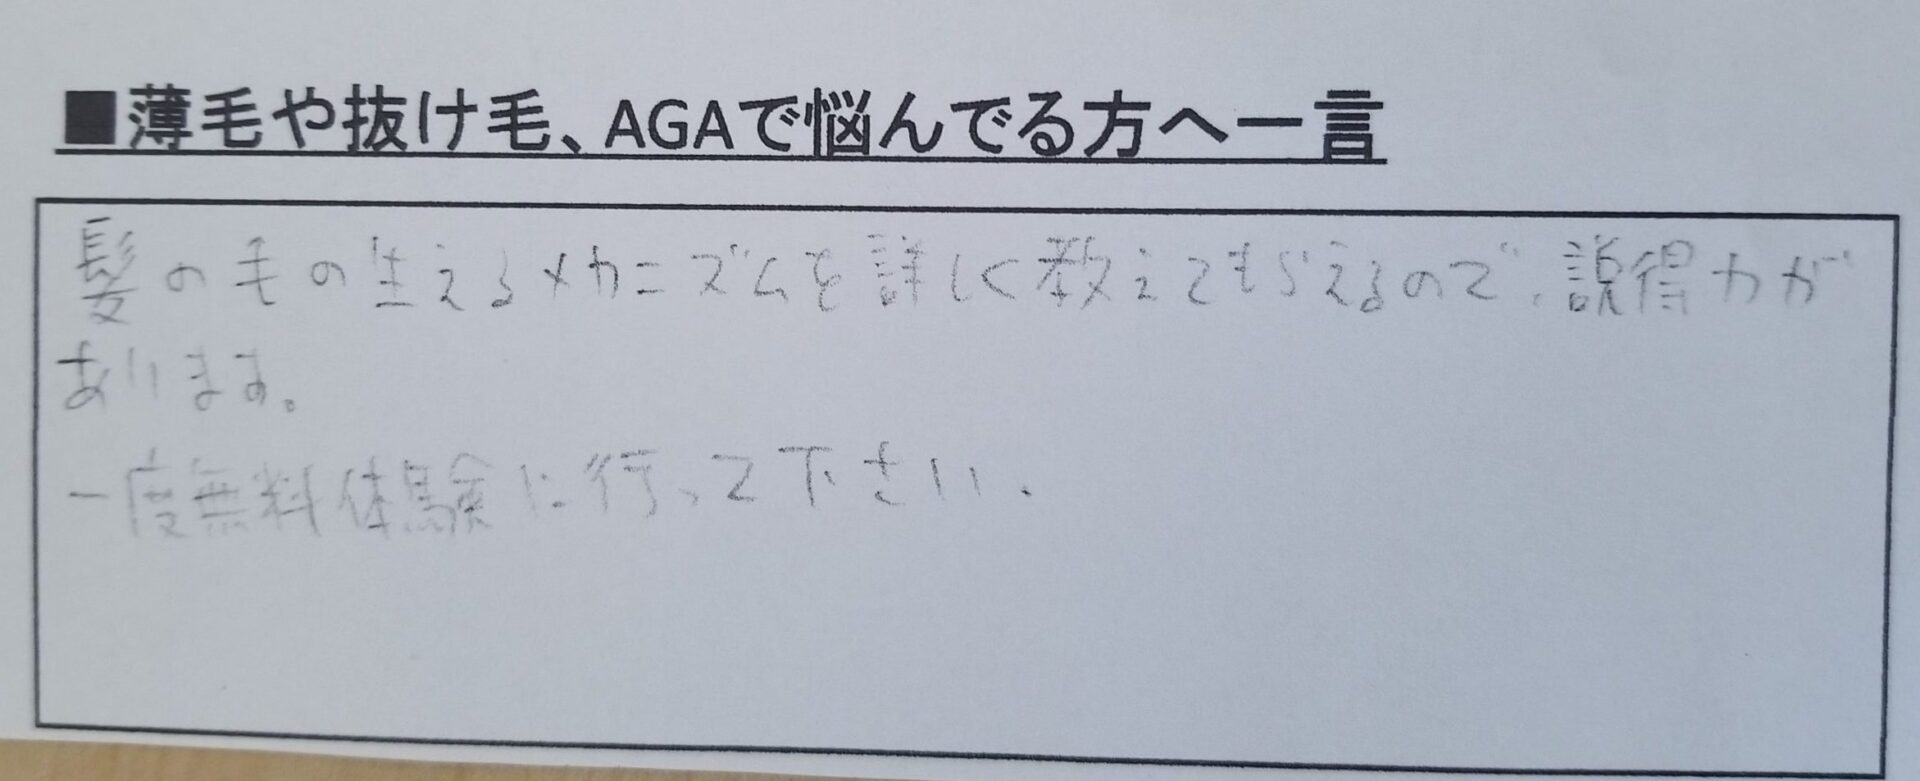 ■薄毛や抜け毛、AGAで悩んでる方へ一言
髪の毛の生えるメカニズムを詳しく教えてもらえるので、説得力が
あります。
一度無料体験に行って下さい.